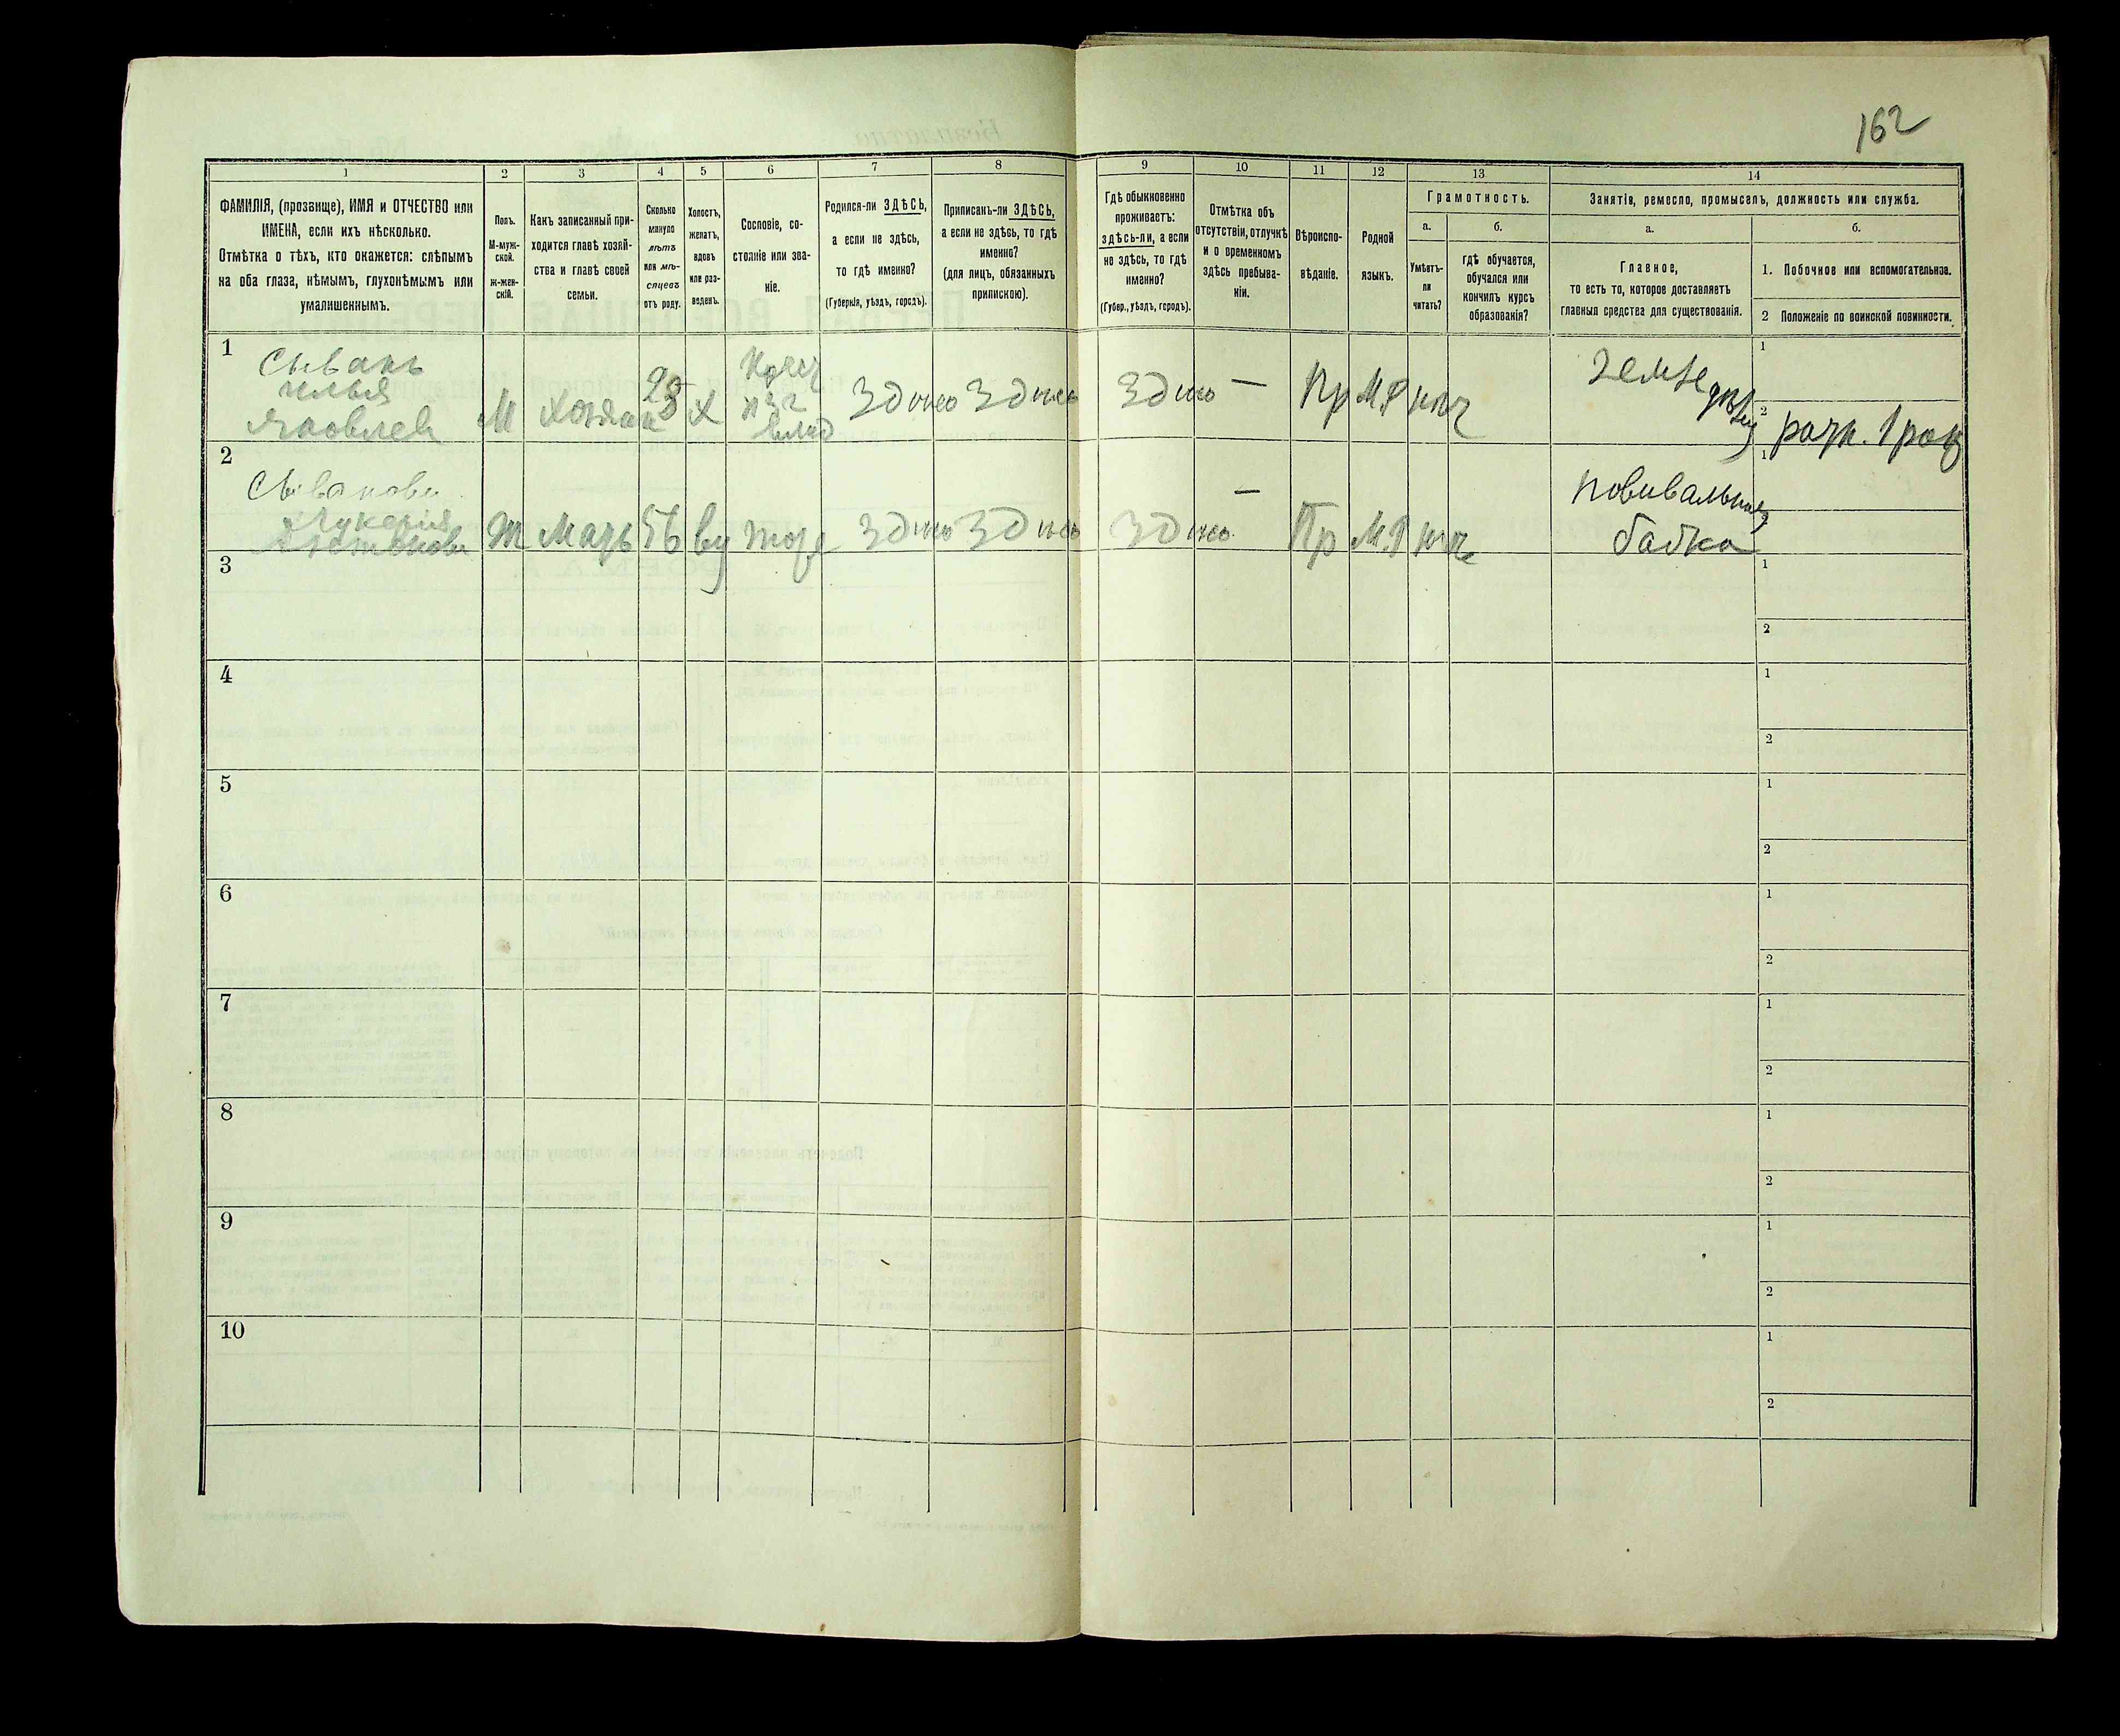 162
1 2 3 4 5 6 7 8 9 10 11 12 13 14
ФАМИЛІЯ, (прозвище), ИМЯ и ОТЧЕСТВО или
ИМЕНА, если ихъ нѣсколько.
Отмѣтка о тѣхъ, кто окажется: слѣпымъ
на оба глаза, нѣмымъ, глухонѣмымъ или
умалишеннымъ.
Полъ.
М-муж-
ской.
ж-жен-
скій.
Какъ записанный при-
ходится главѣ хозяй-
ства и главѣ своей
семьи.
Сколько
минуло
лѣтъ
или мѣ-
сяцевъ
отъ роду.
Холостъ,
женатъ,
вдовъ
или раз-
веденъ.
Сословіе, со-
стояніе или зва-
ніе.
Родился-ли ЗДѢСЬ,
а если не здѣсь,
то гдѣ именно?
(Губернія, уѣздъ, городъ).
Приписанъ-ли ЗДѢСЬ,
а если не здѣсь, то гдѣ
именно?
(для лицъ, обязанныхъ
припискою).
Гдѣ обыкновенно
проживаетъ:
здѣсь-ли, а если
не здѣсь, то гдѣ
именно?
(Губер., уѣздъ, городъ).
Отмѣтка объ
отсутствіи, отлучкѣ
и о временномъ
здѣсь пребыва-
ніи.
Вѣроиспо-
вѣданіе.
Родной
языкъ.
Грамотность.
а.
Умѣетъ-
ли
читать?
б.
гдѣ обучается,
обучался или
кончилъ курсъ
образованія?
Занятія, ремесло, промыселъ, должность или служба.
а.
Главное,
то есть то, которое доставляетъ
главныя средства для существованія.
б.
1. Побочное или вспомогательное.
2 Положеніе по воинской повинности.
1
Сывакъ
Илья
Яковлевъ
М Хозяин 25 Х
Здѣсь Здѣсь Здѣсь — Пр М.Р нѣт
Земледѣлец
1
2
2
Сывакова
Лукерія
Ж Мать 56 вд тоже Здѣсь Здѣсь Здѣсь — Пр М.Р нѣт
Повивальная
бабка
1
3
1
2
4
1
2
5
1
2
6
1
2
7
1
2
8
1
2
9
1
2
10
1
2